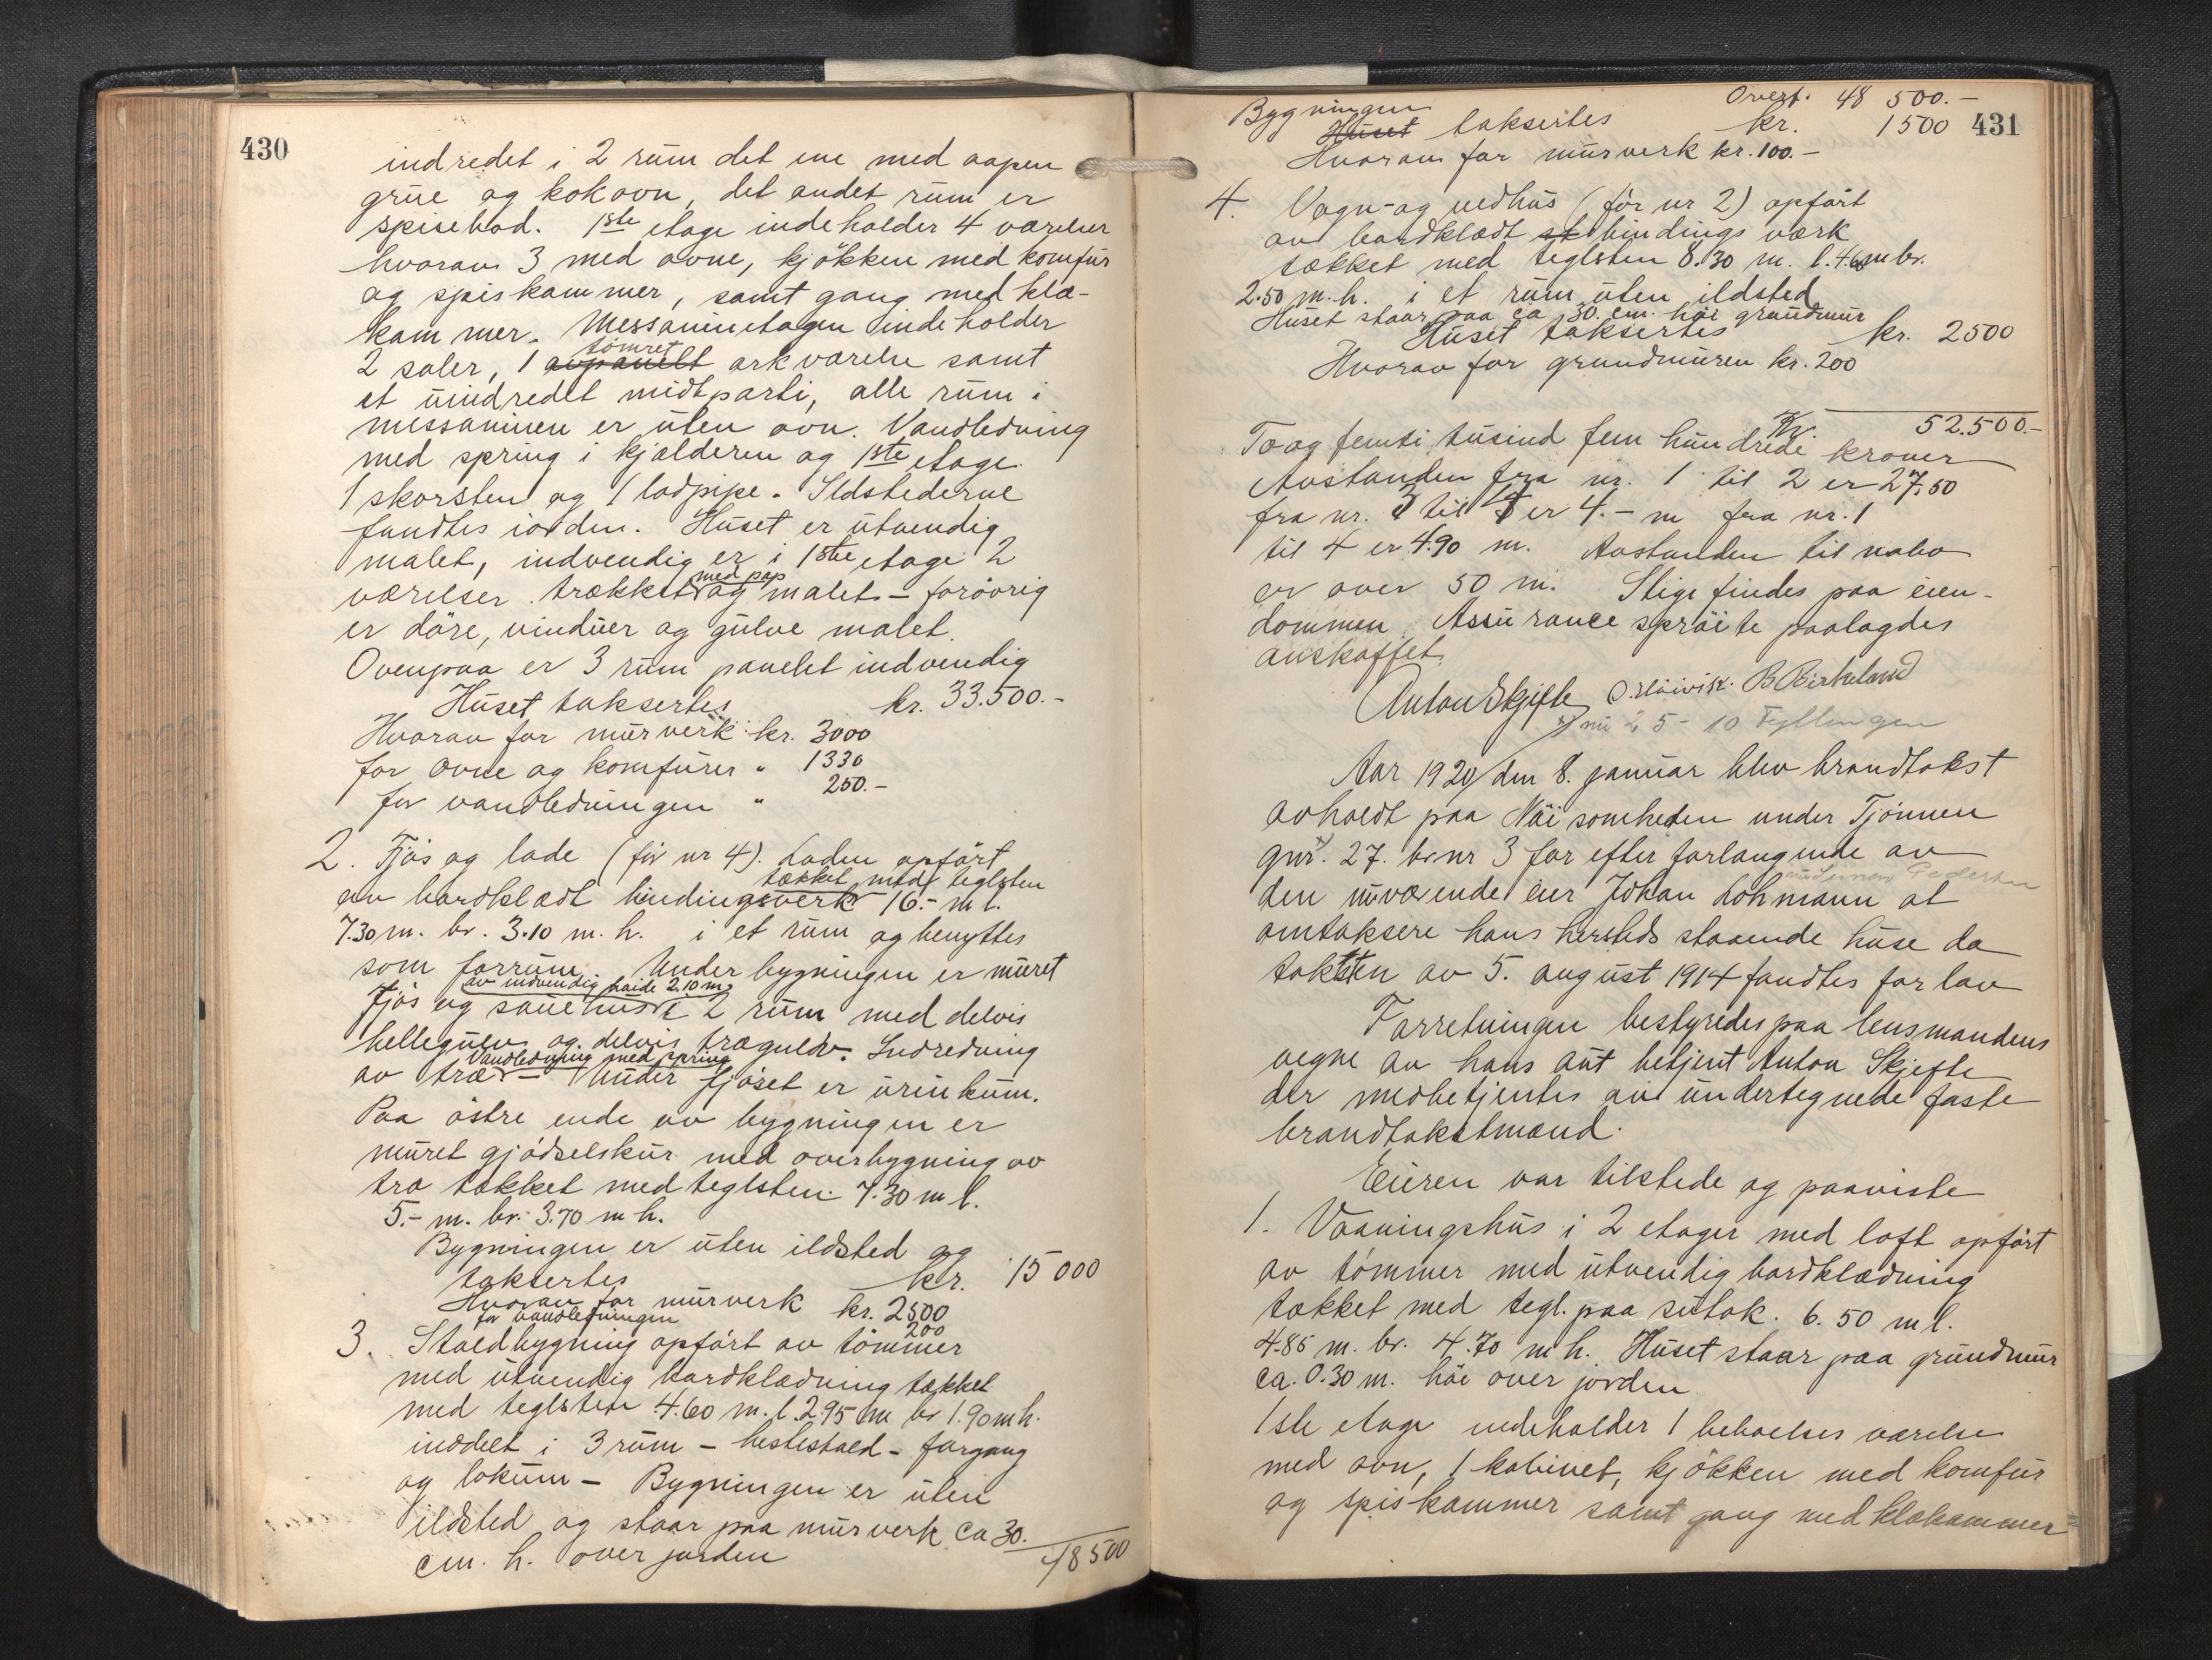 430
indredet i 2 rum det ene med aapen
grue og kokovn, det andet rum er
spisebod. 1ste etage indeholder 4 værelser
hvorav 3 med ovne, kjøkken med komfur
og spiskammer, samt gang med klæ-
kammer. Messaninetagen indeholder
tømret
2 saler, 1 avpanelt arkværelse samt
et uindredet midtparti, alle rum i
messaninen er uten ovn. Vandledning
med spring i kjælderen og 1ste etage.
1 skorsten og 1 lodpipe. Ildstederne
fandtes iorden. Huset er utvendig
malet, indvendig er i 1ste etage 2
med pap
værelser trækket og malet - forøvrig
er døre, vinduer og gulve malet.
Ovenpaa er 3 rum panelet indvendig
Huset taksertes kr. 33.500.-
Hvorav for murverk kr. 3000
for ovne og komfurer " 1330
for vandledningen " 250.-
2. Fjøs og lade (før nr 4). Laden opført
tækket med teglsten
av bordklædt bindingsverk 16.- m l.
7.30 m. br. 3.10 m. h. i et rum og benyttes
som forrum. Under bygningen er muret
av indvendig høide 2.10 m.
Fjøs og sauehus i 2 rum med delvis
hellegulv og delvis trægulv. Indredning
Vandledning med spring
av træ - Under fjøset er urinkum.
Paa østre ende av bygningen er
muret gjødselskur med overbygning av
træ tækket med teglsten. 7.30 m l.
5.- m. br. 3.70 m h.
Bygningen er uten ildsted og
taksertes kr. 15 000
Hvorav for murverk kr. 2500
for vandledningen 200
3. Staldbygning opført av tømmer
med utvendig bordklædning tækket
med teglsten 4.60 m. l. 2.95 m br 1.90 m h.
inddelt i 3 rum - hestestald - forgang
og lokum - Bygningen er uten
ildsted og staar paa murverk ca 30.
cm. h. over jorden
48 500
431
Overf. 48 500.-
Bygningen
Huset taksertes kr. 1500
Hvorav for murverk kr. 100.-
4. Vogn- og vedhus (før nr 2) opført
av bordklædt st bindingsværk
tækket med teglsten 8.30 m. l. 4.60 m br.
2.50 m. h. i et rum uten ildsted
Huset staar paa ca 30. cm. høi grundmur
Huset taksertes kr. 2500
Hvorav for grundmuren kr. 200
Kr. 52.500.-
To og femti tusind fem hundrede kroner
Avstanden fra nr. 1 til 2 er 27.50
fra nr. 3 til 4 er 4.- m fra nr. 1
til 4 er 4.90 m. Avstanden til nabo
er over 50 m. Stige findes paa eien-
dommen. Assurance sprøite paalagdes
anskaffet.
Anton Skjefte B Birkeland
nu 25 - 10 Fyllingen
Aar 1920 den 8. januar blev brandtakst
avholdt paa Nøisomheden under Tjønnen
gnr. 27. br nr 3 for efter forlangende av
Pedersen
den nuværende eier Johan Lohmann at
omtaksere hans hersteds staaende huse da
taksten av 5. august 1914 fandtes for lav
Forretningen bestyredes paa lensmandens
vegne av hans aut betjent Anton Skjefte
der medbetjentes av undertegnede faste
brandtakstmænd.
Eieren var tilstede og paaviste
1. Vaaningshus i 2 etager med loft opført
av tømmer med utvendig bordklædning
tækket med tegl. paa sutak. 6.50 m l.
4.85 m. br. 4.70 m h. Huset staar paa grundmur
ca. 0.30 m. høi over jorden
1ste etage indeholder 1 beboelses værelse
med ovn, 1 kabinet, kjøkken med komfur
og spiskammer samt gang med klækammer